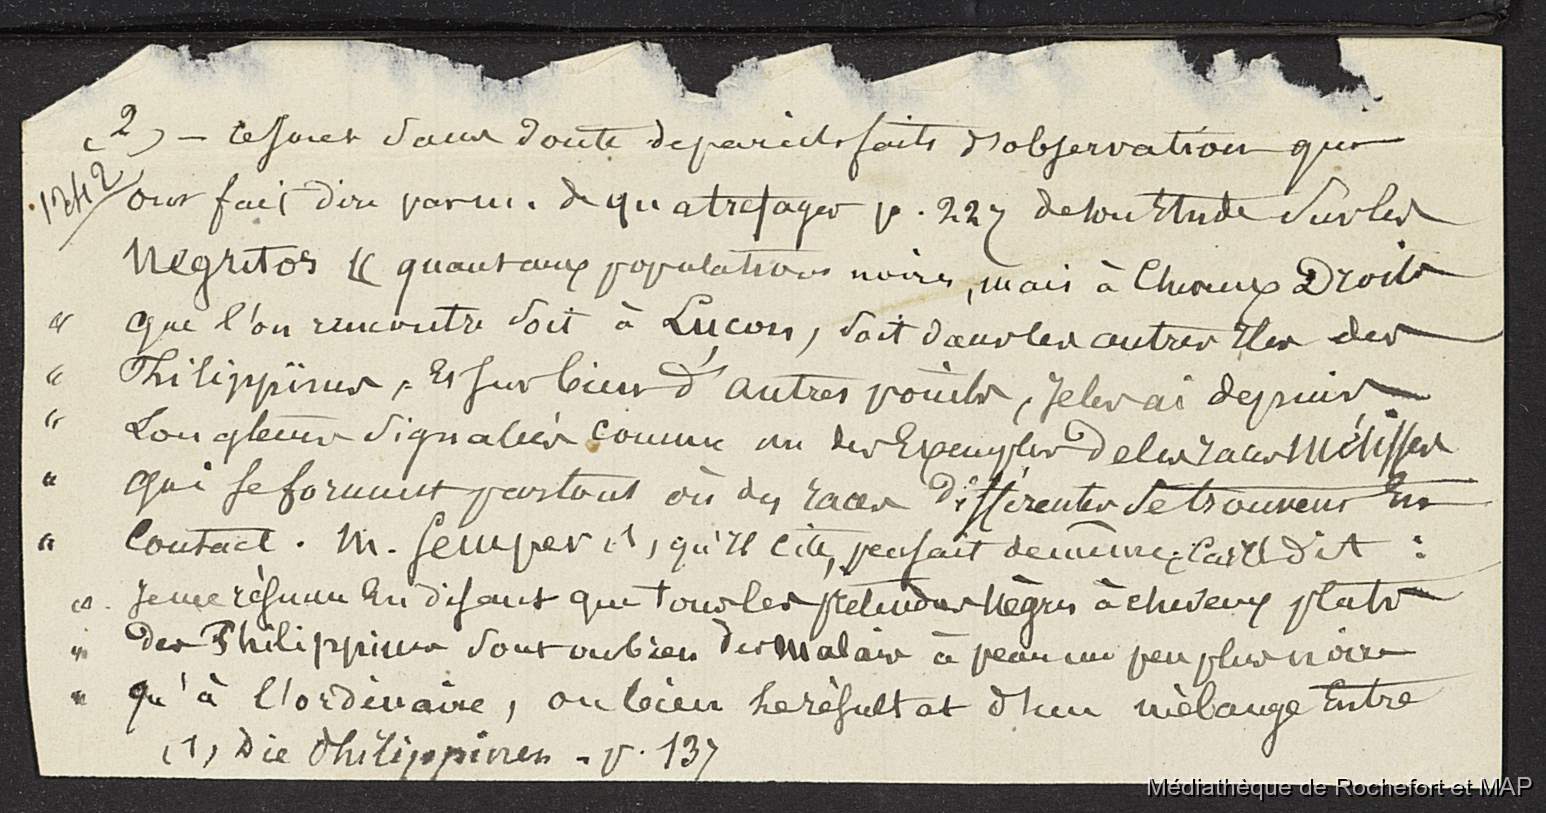 (2) — ce sont sans doute de pareils faits d'observation qui
1242
ont fait dire par M. de quatrefages p. 227 de son Etude sur les
Negritos « quant aux populations noires, mais à Cheveux Droits
« que l'on rencontre soit à Luçon, soit dans les autres Iles des
« Philippines, Et sur bien d'autres points, je les ai depuis
« Longtems signalées comme un des Exemples de les races Métisses
« qui se forment partout où des races Différentes se trouvent En
« Contact. M. Semper (1), qu'il cite, pensait de même, Car il dit :
« Je me résume En disant que tous les prétendus Nègres à cheveux plats
« des Philippines sont ou bien des Malais à peau un peu plus noire
« qu'à l'ordinaire, ou bien le résultat d'un mélange Entre
(1) Die Philippinen - p. 137
Médiathèque de Rochefort et MAP